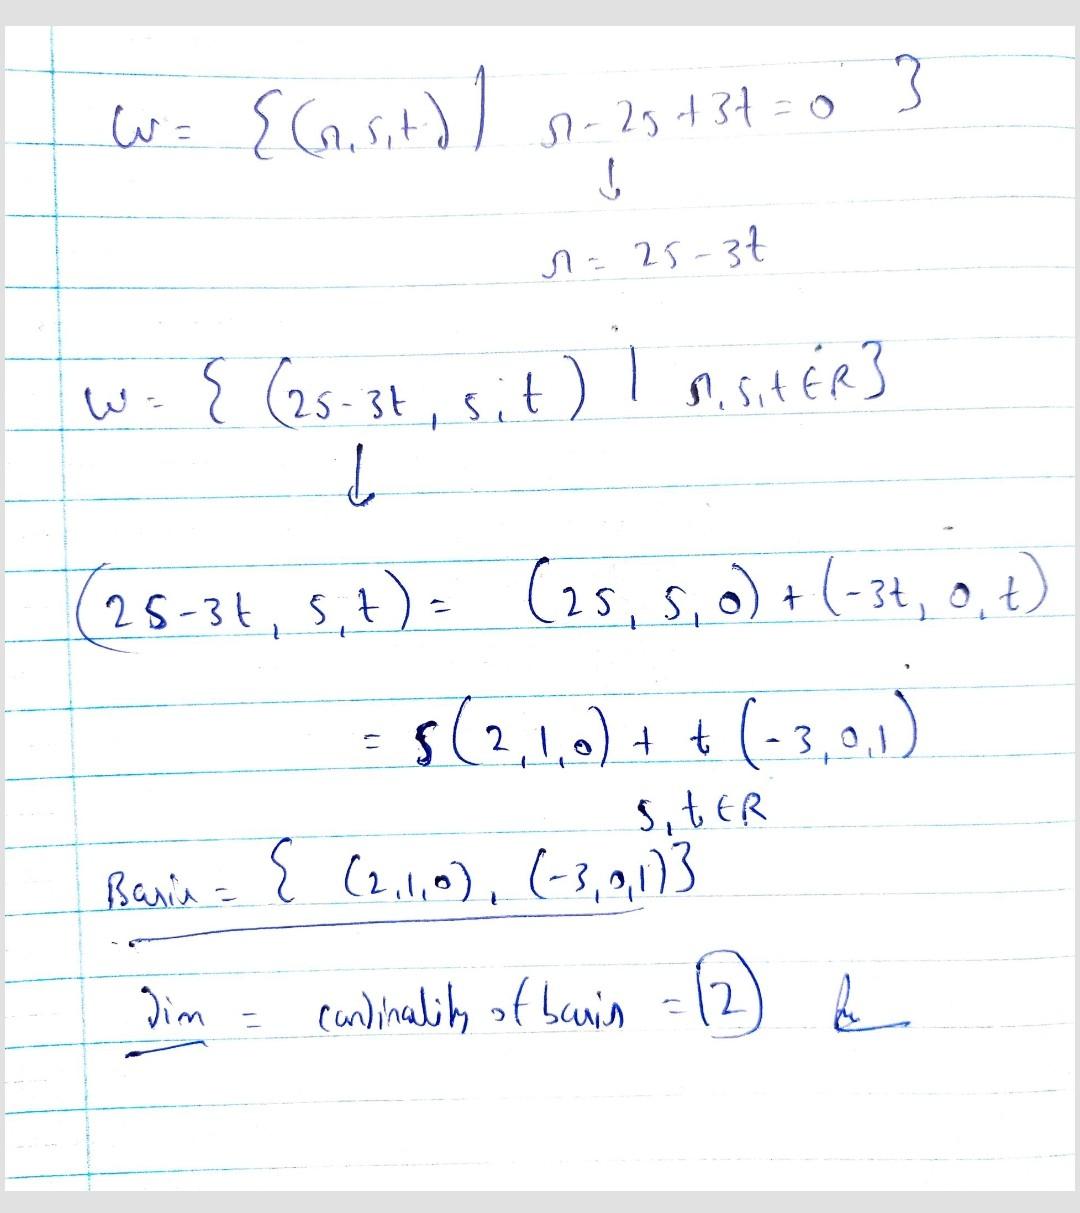 W = {(r, s, t) | r - 2s + 3t = 0 }
↓
r = 2s - 3t
W = { (2s - 3t, s, t) | r, s, t ∈ R}
↓
(2s - 3t, s, t) = (2s, s, 0) + (-3t, 0, t)
= s(2, 1, 0) + t(-3, 0, 1)
s, t ∈ R
Basis = { (2, 1, 0), (-3, 0, 1)}
Dim = cardinality of basis = 2